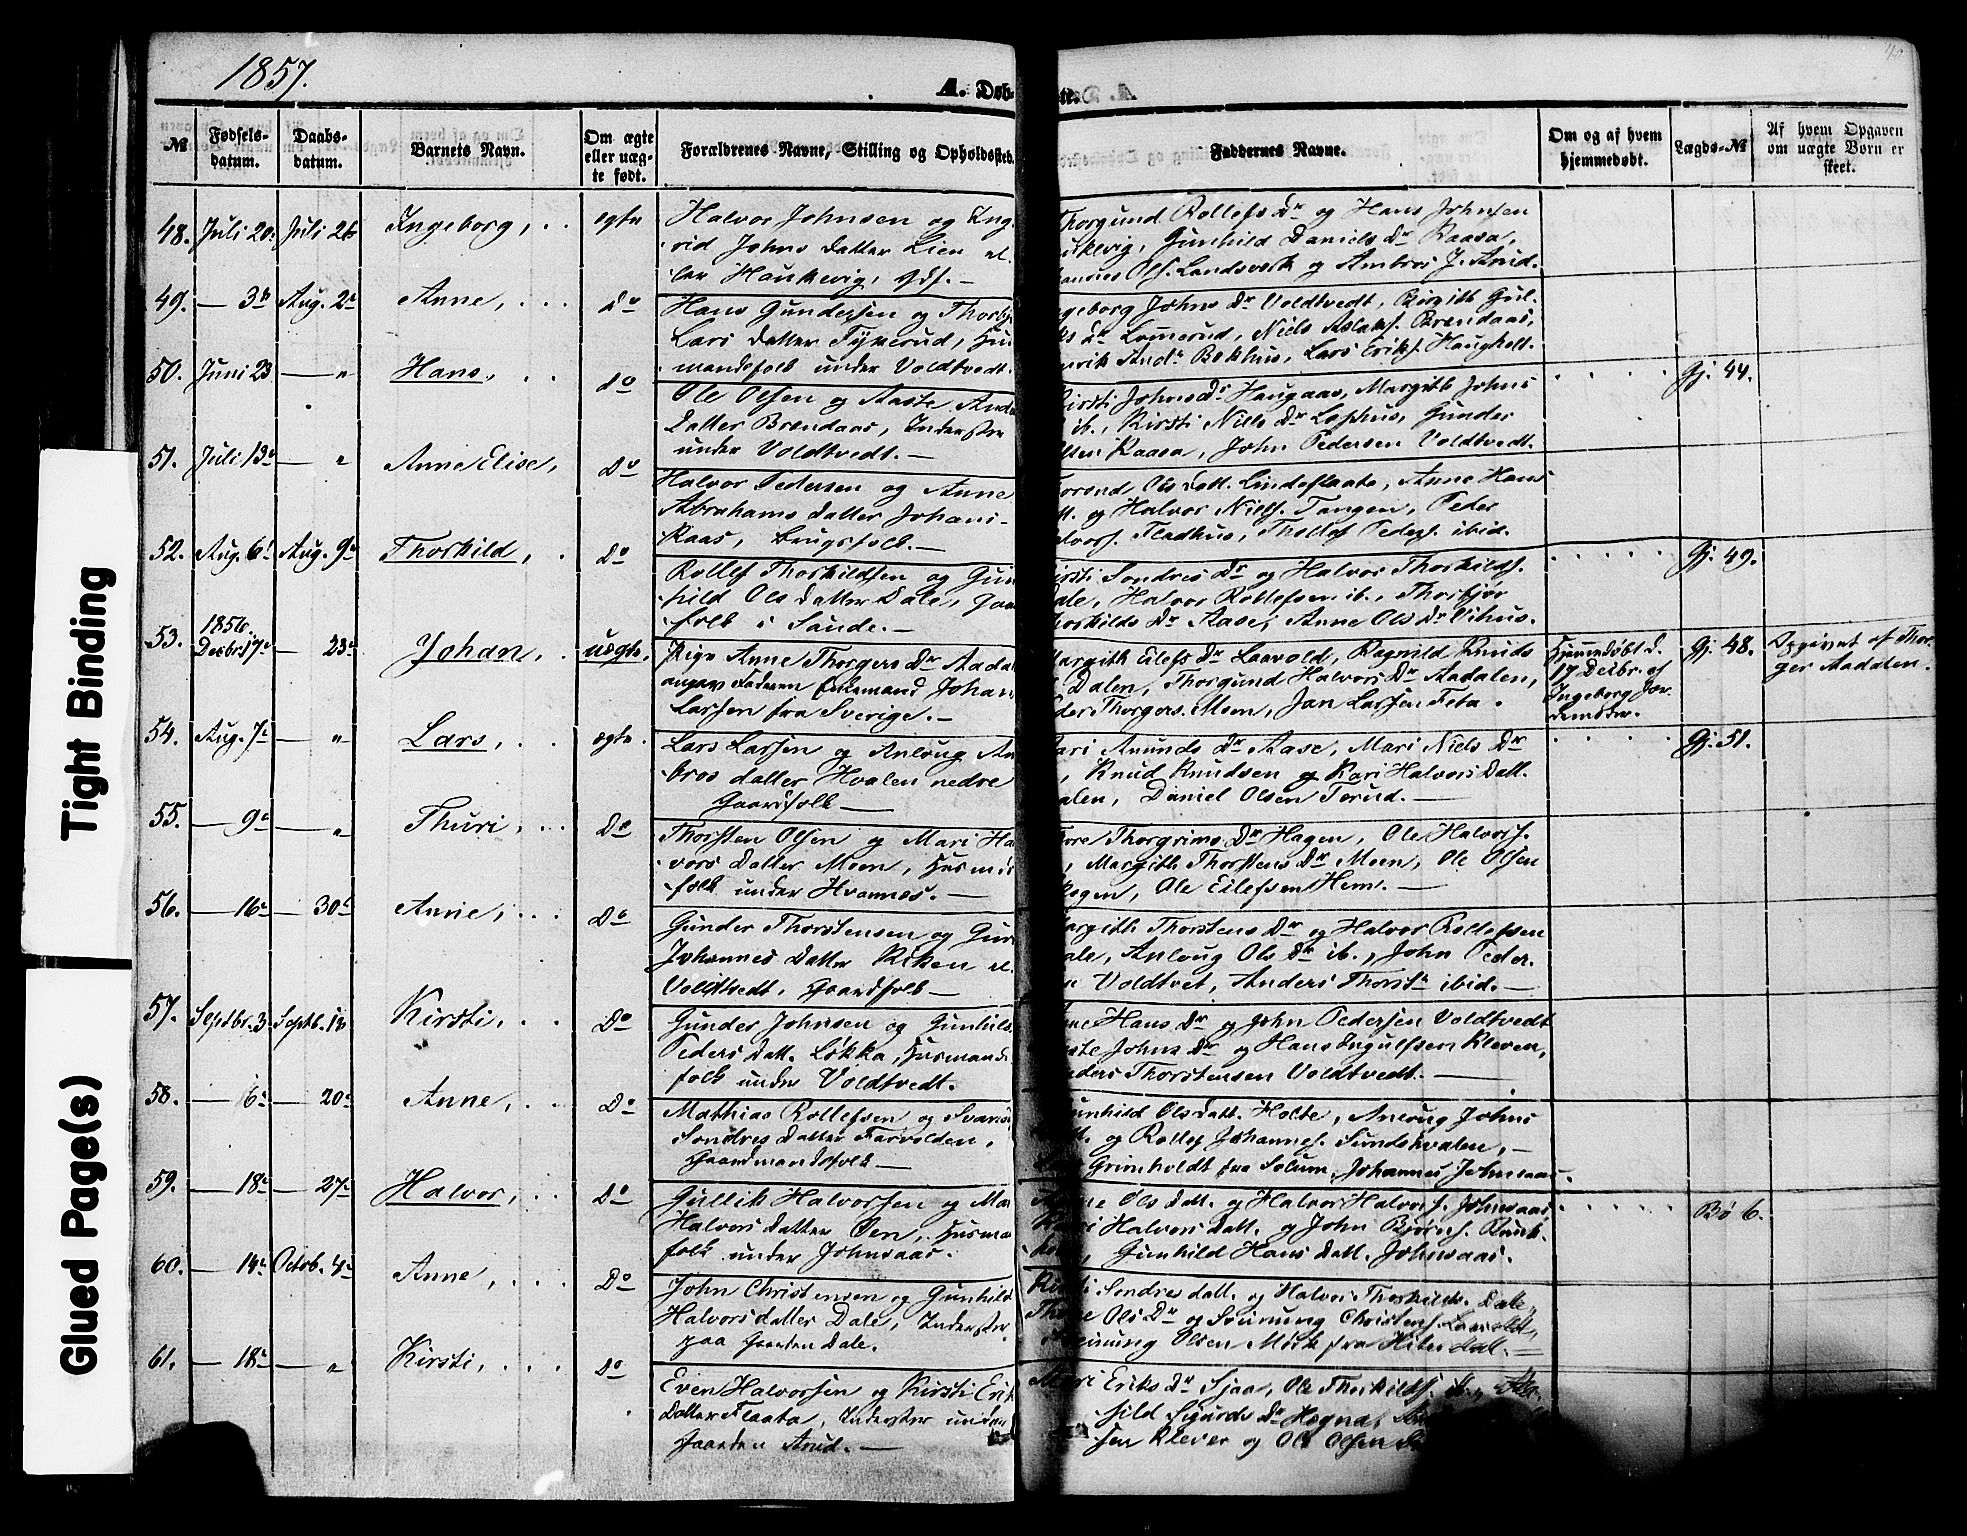 1857.
A. Døb-
te.
№
Fødsels-
datum.
Daabs-
datum.
Barnets Navn.
Om ægte
eller uæg-
te født.
Forældrenes Navne, Stilling og Opholdssted.
Faddernes Navne.
Om og af hvem
hjemmedøbt.
Lægds-№
Af hvem Opgaven
om uægte Børn er
skeet.
48. Juli 20. Juli 26 Ingeborg, egte
Halvor Johnsen og Ing-
rid Johns datter Lien el-
ler Haukevig, Gdf. —
Thorgund Rollefs Dr og Hans Johnsen
Gunhild Daniels Dr Raasa,
Ols. Landsverk og Ambros J. Arud.
49. — 3 Aug. 2 Anne, Do
Hans Gundersen og Thorbj
Lars datter Tykerud, Hus
mandsfolk under Voldtvedt.
geborg Johns Dr Voldtvedt, Birgith Gul-
Dr Lønnerud, Niels Aslaks. Brendaas,
And. Bekhus, Lars Eriks. Haugholt.
50. Juni 23 — " Hans, do Gj. 44.
Ole Olsen og Aaste And
Datter Brendaas, Inderster
under Voldtvedt. —
Kirsti Johns Dr Haugaas, Margith Johns
ib., Kirsti Niels Dr Lophus, Gunder
Olsen Raasa, John Pedersen Voldtvedt.
51. Juli 13 — " Anne Elise, Do
Halvor Pedersen og Anne
Abrahams datter Johans-
Raas, Brugsfolk. —
Torond Ols Datt. Lindeflaate, Anne Hans
og Halvor Niels. Tangen, Peder
Halvors. Fladhus, Thollef Peders. ibid.
52. Aug. 6 Aug. 9 Thorkild, Do Gj. 49.
Rollef Thorkildsen og Gun
hild Ols datter Dale, Gaard
folk i Saude. —
Kirsti Sondres Dr og Halvor Thorkilds.
Dale, Halvor Rollefsen ib., Thorbjør
Thorkilds Dr Aase, Anne Ols Dr Vihus.
53. 1856.
Decbr. 17 — 23 Johan, uægte, Gj. 48.
Pige Anne Thorgers Dr Aadal
angav Faderen Enkemand Johan
Larsen fra Sverige. —
Margith Eilefs Dr Laavold, Ragnild Knuds
Dalen, Thorgund Halvors Dr Aadalen,
Peder Thorgers. Moen, Jan Larsen Teta.
Hjemmedøbt d.
17 Decbr. af
Ingeborg Jor-
demoder.
Opgivet af Thor-
ger Aadalen.
54. Aug. 7 — " Lars, egte. Gj. 51.
Lars Larsen og Anloug Am
bros datter Hvalen nedre
Gaardfolk —
Kari Anunds Dr Aase, Mari Niels Dr
Knud Knudsen og Kari Halvors Datt.
Daniel Olsen Torud. —
55. — 9 — " Thuri, Do
Thorsten Olsen og Mari Hal
vors Datter Moen, Husmds
folk under Hvannes. —
Tore Thorgrims Dr Hagen, Ole Halvors.
Margith Thorstens Dr Moen, Ole Olsen
Ole Eilefsen Hem. —
56. — 16 — 30 Anne, Do
Gunder Thorstensen og Gur
Johannes Datter Riken el.
Voldtvedt, Gaardfolk —
Margith Thorstens Dr og Halvor Rollefsen
Dale, Anloug Ols Dr ib., John Peder-
Voldtvet, Anders Thorst. ibid. —
57. Septbr. 3 Septb. 13 Kirsti, Do
Gunder Johnsen og Gunhild
Peders Datt. Løkka, Husmands
folk under Voldtvedt.
Hans Dr og John Pedersen Voldtvedt
Johns Dr og Hans Ingulfsen Kleven,
Anders Thorstensen Voldtvedt. —
58. — 6 — 20 Anne, Do
Mathias Rollefsen og Svanou
Sondres Datter Farvolden,
Gaardmandsfolk —
Gunhild Ols Datt. Holte, Anloug Johns
og Rollef Johannes. Sundskvalen, —
Grimholdt fra Solum, Johannes Johnsaas.
59. — 18 — 27 Halvor, Do Bø 6.
Gullik Halvorsen og Mar
Halvors datter Oen, Husmands
folk under Johnsaas.
Ols Datt. og Halvor Halvors. Johnsaas
Halvors Datt. og John Bjørns.
Gunhild Hans Datt. Johnsaas.
60. — 14 Octob. 4 Anne, Do
John Christensen og Gunhild
Halvors datter Dale, Inderster
paa Gaarden Dale.
Sondres datt. og Halvor Thorkilds. Dale,
Ols Dr og Svinung Christens.
Svinung Olsen Mork fra Hiterdal. —
61. — 18 — " Kirsti, Do
Even Halvorsen og Kirsti Erik
Datter Flaata, Inderster under
Gaarden Arud. —
Mari Eriks Dr Sjaa, Ole Thorkilds.
hild Sigurds Dr Hogna,
sen Klever og Ole Olsen
Tight Binding
Glued Page(s)